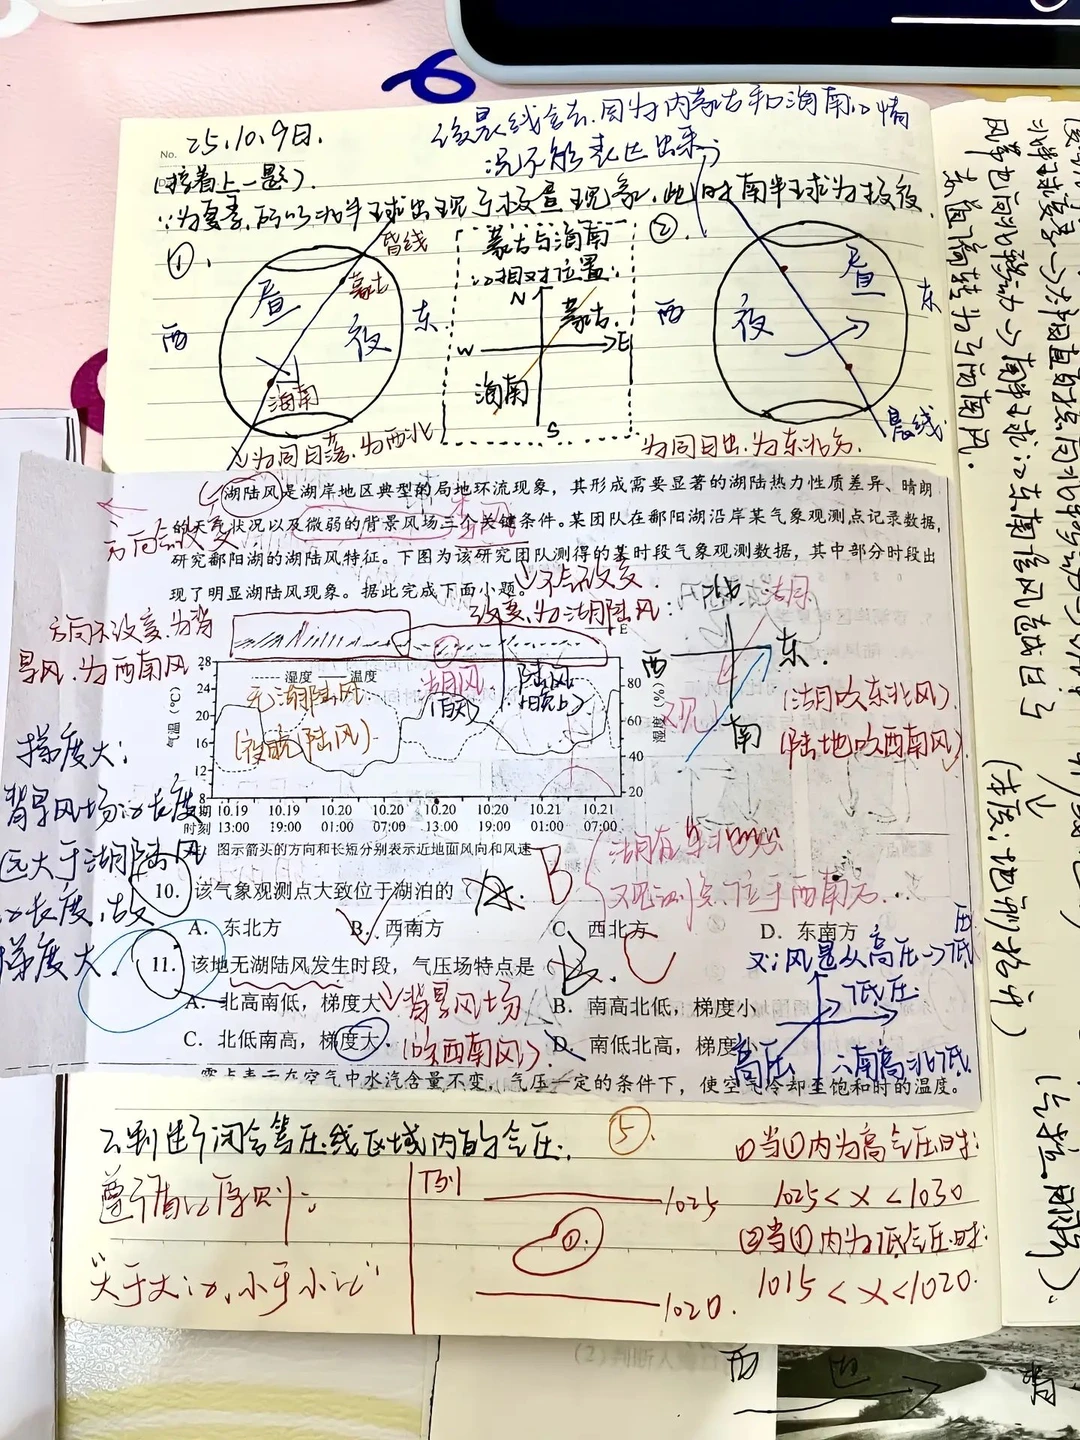 No. 25.10.9日.
该晨线舍去.因为内蒙古和海南的情
况不能表达出来;
(接着上一题).
∵为夏季,所以北半球出现了极昼现象,此时南半球为极夜.
①.
昏线
蒙古
昼
夜
西
东
海南
为同日落.为西北
蒙古与海南
的相对位置:
N
蒙古.
W
E
海南
S
②.
昼
夜
西
东
晨线
为同日出.为东北方.
湖陆风是湖岸地区典型的局地环流现象，其形成需要显著的湖陆热力性质差异、晴朗
的天气状况以及微弱的背景风场三个关键条件。某团队在鄱阳湖沿岸某气象观测点记录数据，
研究鄱阳湖的湖陆风特征。下图为该研究团队测得的某时段气象观测数据，其中部分时段出
现了明显湖陆风现象。据此完成下面小题。
方向会改变
不会改变
改变.为湖陆风:
方向不改变.为背
景风.为西南风.
湿度 温度
无湖陆风
(夜晚陆风).
湖风
(白天)
陆风
(晚上)
气温(℃)
28
24
20
16
12
8
湿度(%)
80
60
40
20
日期 10.19 10.19 10.20 10.20 10.20 10.20 10.21 10.21
时刻 13:00 19:00 01:00 07:00 13:00 19:00 01:00 07:00
图示箭头的方向和长短分别表示近地面风向和风速
北
西
东.
南
(湖吹东北风).
(陆地吹西南风).
梯度大:
背景风场的长度
远大于湖陆风
的长度,故
梯度大.
10. 该气象观测点大致位于湖泊的（
B
A．东北方 B．西南方 C．西北方 D．东南方
湖在东北地区
又观测点位于西南方.
11. 该地无湖陆风发生时段，气压场特点是（
C
A．北高南低，梯度大 B．南高北低，梯度小
背景风场
C．北低南高，梯度大 D．南低北高，梯度小
(吹西南风)
又∵风是从高压→低压
低压
高压
∴南高北低.
露点表示在空气中水汽含量不变，气压一定的条件下，使空气冷却至饱和时的温度。
2.判断闭合等压线区域内的气压.
⑤.
遵循的原则:
“大于大的,小于小的”
下列
1025
①.
1020.
①当①内为高气压时:
1025<x<1030
②当①内为低气压时:
1015<x<1020.
风带也向北移动→南半球的东南信风越过了
赤道偏转为了西南风.
(本质:地剖抬升)
(2)判断人
西